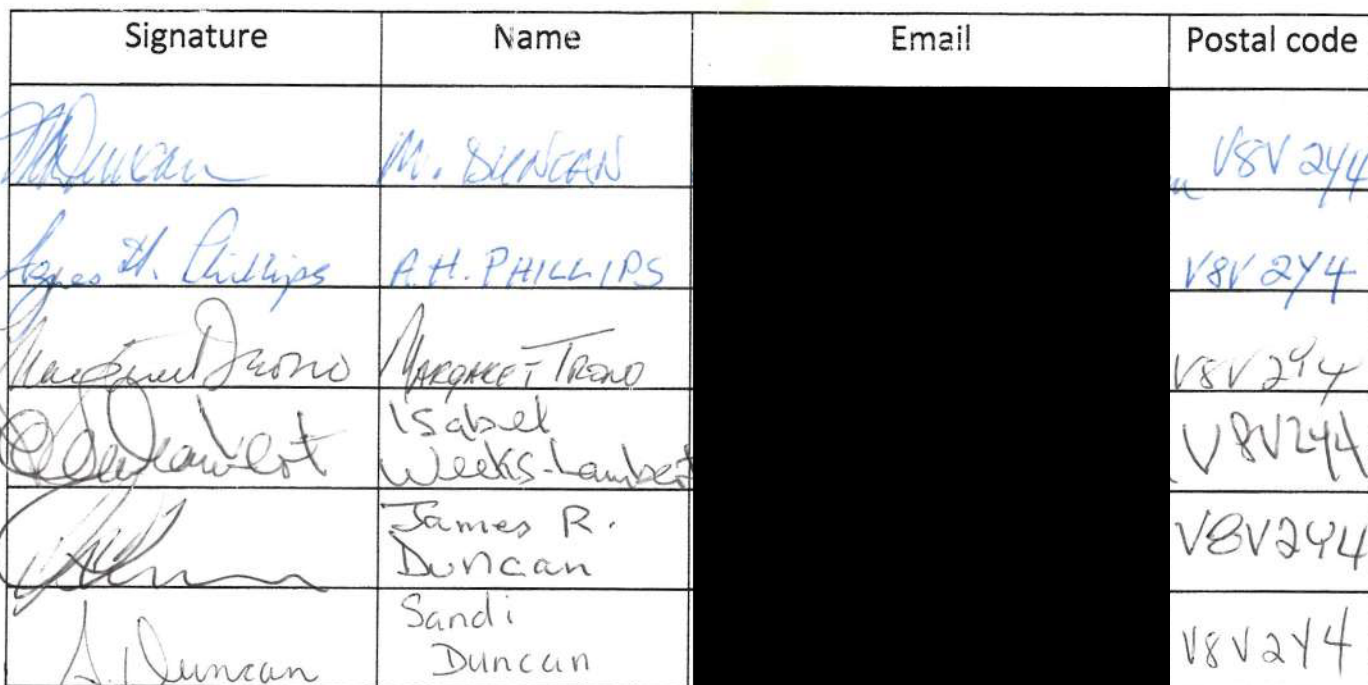 Signature Name Email Postal code
MDuncan M. DUNCAN V8V 2Y4
Agnes H. Phillips A.H. PHILLIPS V8V 2Y4
Margaret Trono MARGARET TRONO V8V 2Y4
Isabel
Weeks-Lambert V8V2Y4
James R.
Duncan V8V2Y4
Sandi
S. Duncan Duncan V8V2Y4